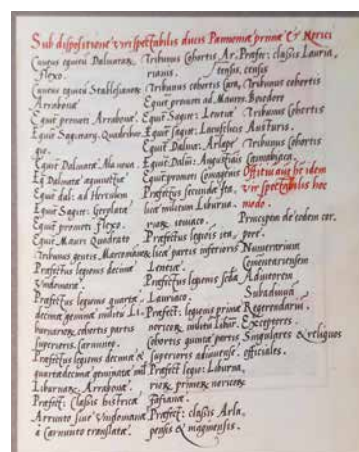 Sub dispositione viri spectabilis ducis Pannoniæ primæ & Norici
Cuneus equitū Dalmatarū,
flexo.
Cuneus equitū Stablesianorū
Arrabonæ
Equit promoti Arrabonæ.
Equit Sagittarij. Quadribur
gio.
Equit Dalmatæ Ala noua.
Eq Dalmatæ aquinoctiæ
Equit dal: ad Herculem
Equit Sagitt: Gerolatæ
Equit promoti flexo.
Equit Mauri Quadrato
Tribunus gentis Marcomannorū
Præfectus legionis decimæ
Vindomanæ.
Præfectus legionis quartæ
decimæ geminæ militū Li
burnariorū, cohortis partis
superioris Carnunto.
Præfectus legionis decimæ &
quartadecimæ geminatæ mil
Liburnariorū Arrabonæ.
Præfect: Classis histricæ
Arrunto siue Vindomanæ
a Carnunto translatæ.
Tribunus Cohortis Ar.
riani.
Tribunus cohortis Cani,
Equit promoti ad Mauros.
Equit Sagitt: Lentiæ
Equit Sagitt: Lacufelicis
Equit Dalmat: Arlape
Equit Dalm: Augustiis
Equit promoti Comagenis
Præfectus secundæ Ita
licæ militum Liburna.
riorū ioniaco.
Præfectus legionis Ita
licæ partis inferioris
Lentiæ.
Præfectus legionis scdæ
Lauriaco.
Præfect: legionis primæ
noricorū militū Libur.
Cohortis quintæ partis
superioris adiuuense.
Præfect: legio: Liburna,
riorū primorū noricorū
fafianæ.
Præfect: classis Arla,
pensis & maginensis.
Præfec: classis Lauria,
censis
Tribunus cohortis
Boiodoro
Tribunus cohortis
Asturis.
Tribunus Cohortis
Cannabiaca.
Offitiū autē hēt idem
vir spectabilis hoc
modo.
Principem de eodem cor,
pore.
Numerarium
Comētariensem
Adiutorem
Subadiuuā
Regerendariū.
Exceptores.
Singulares & reliquos
officiales.